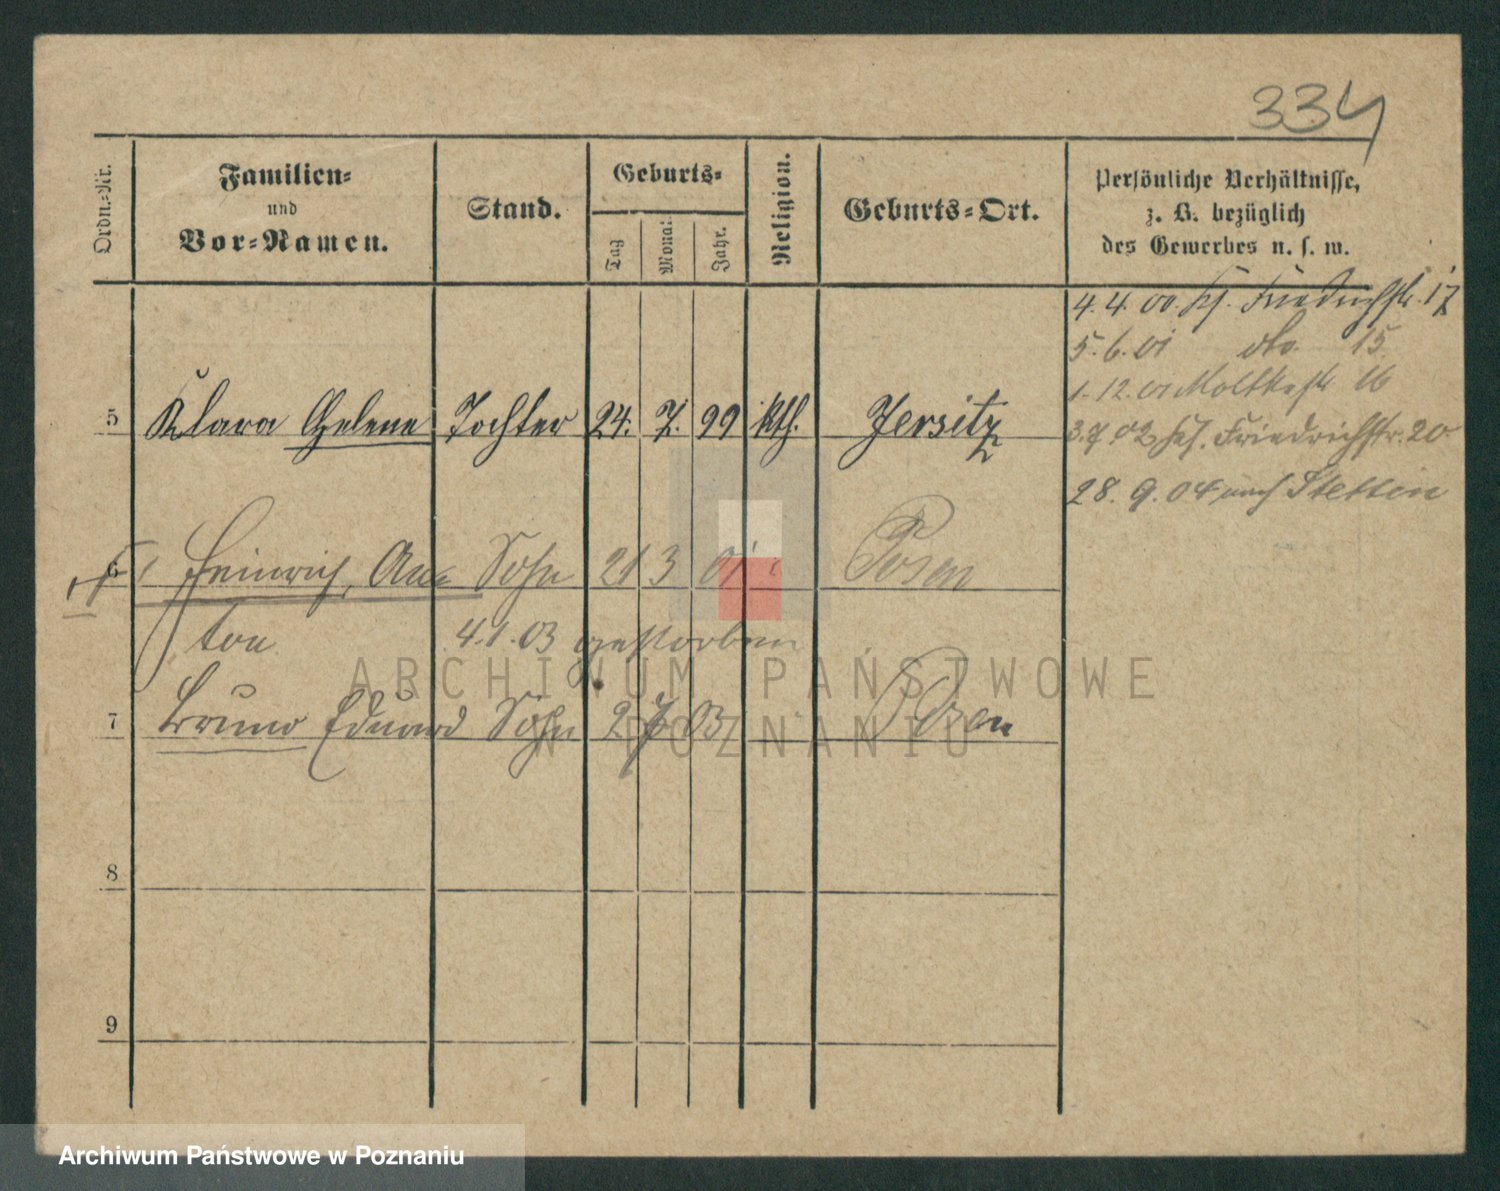 334
Ordn.-Nr.
Familien-
und
Vor-Namen.
Stand.
Geburts-
Tag
Monat
Jahr.
Religion.
Geburts-Ort.
Persönliche Verhältnisse,
z. B. bezüglich
des Gewerbes u. s. w.
4. 4. 00. Friedrichstr. 17
5. 6. 01 dto. 15.
1. 12. 01 Moltkestr. 16
3. 7. 02 Friedrichstr. 20
28. 9. 04 nach Stettin
5 Klara Helene Tochter 24. 7. 99 kth. Jersitz
6 Heinrich, An= Sohn 21 3 01 Posen
ton 4. 1. 03 gestorben
7 Bruno Eduard Sohn 2 7 03 Posen
8
9
ARCHIWUM PAŃSTWOWE
W POZNANIU
Archiwum Państwowe w Poznaniu